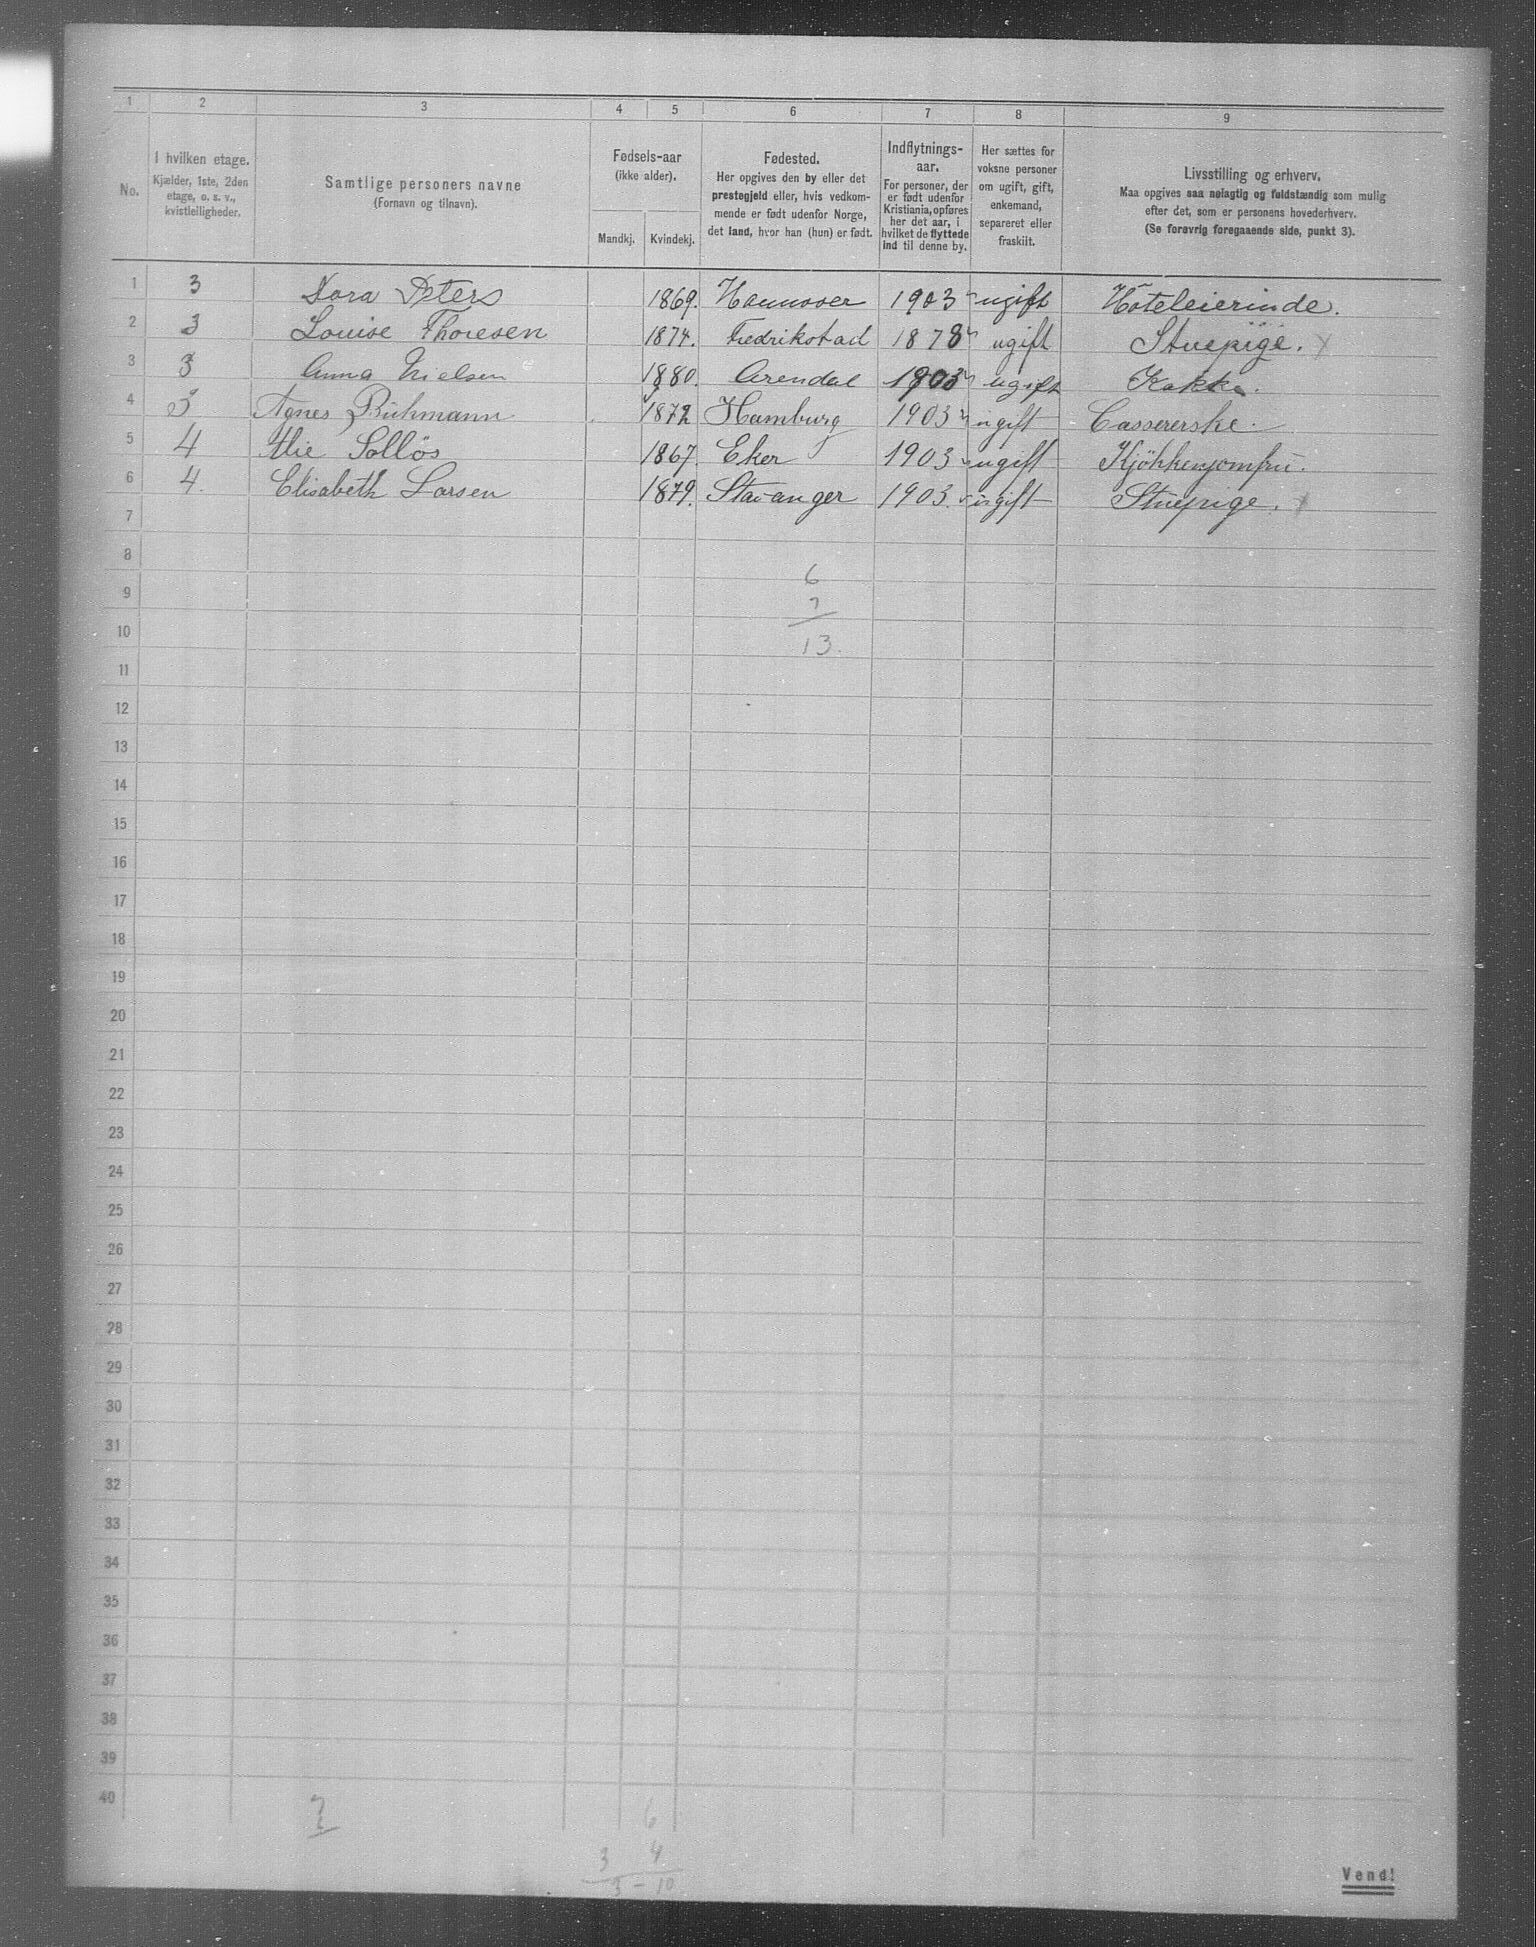 1 2 3 4 5 6 7 8 9
No.
I hvilken etage.
Kjælder, 1ste, 2den
etage, o. s. v.,
kvistleiligheder.
Samtlige personers navne
(Fornavn og tilnavn).
Fødsels-aar
(ikke alder).
Mandkj. Kvindekj.
Fødested.
Her opgives den by eller det
prestegjeld eller, hvis vedkom-
mende er født udenfor Norge,
det land, hvor han (hun) er født.
Indflytnings-
aar.
For personer, der
er født udenfor
Kristiania, opføres
her det aar, i
hvilket de flyttede
ind til denne by.
Her sættes for
voksne personer
om ugift, gift,
enkemand,
separeret eller
fraskilt.
Livsstilling og erhverv.
Maa opgives saa nøiagtig og fuldstændig som mulig
efter det, som er personens hovederhverv.
(Se forøvrig foregaaende side, punkt 3).
1 3 Dora Peters 1869. Hannover 1903 ugift Hoteleierinde.
2 3 Louise Thoresen 1874. Fredrikstad 1878 ugift Stuepige.
3 3 Anna Nielsen 1880. Arendal 1903 ugift Kokke.
4 3 Agnes Bühmann 1872 Hamburg 1903 ugift Cassererske.
5 4 Sollös 1867. Eker 1903 ugift Kjökkenjomfru.
6 4. Elisabeth Larsen 1879. Stavanger 1903. ugift Stuepige.
7
8
6
9
7
10
13.
11
12
13
14
15
16
17
18
19
20
21
22
23
24
25
26
27
28
29
30
31
32
33
34
35
36
37
38
39
40
6
3 4
3 - 10
Vend!